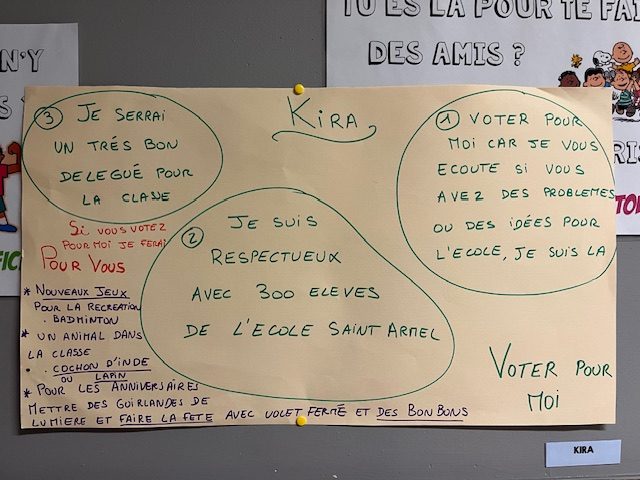 N'Y
TU ES LÀ POUR TE FAI
DES AMIS ?
KiRA
③ JE SERRAI
UN TRÉS BON
DELEGUÉ POUR
LA CLASSE
① VOTER POUR
MOI CAR JE VOUS
ECOUTE SI VOUS
AVEZ DES PROBLEMES
OU DES IDÉES POUR
L'ECOLE, JE SUIS LA
② JE SUIS
RESPECTUEUX
AVEC 300 ELEVES
DE L'ECOLE SAINT ARMEL
SI VOUS VOTEZ
POUR MOI JE FERAI
POUR VOUS
* NOUVEAUX JEUX
POUR LA RECREATION
. BADMINTON
* UN ANIMAL DANS
LA CLASSE
. COCHON D'INDE
OU LAPIN
* POUR LES ANNIVERSAIRES
METTRE DES GUIRLANDES DE
LUMIERE ET FAIRE LA FETE AVEC VOLET FERMÉ ET DES BONBONS
VOTER POUR
MOI
KIRA